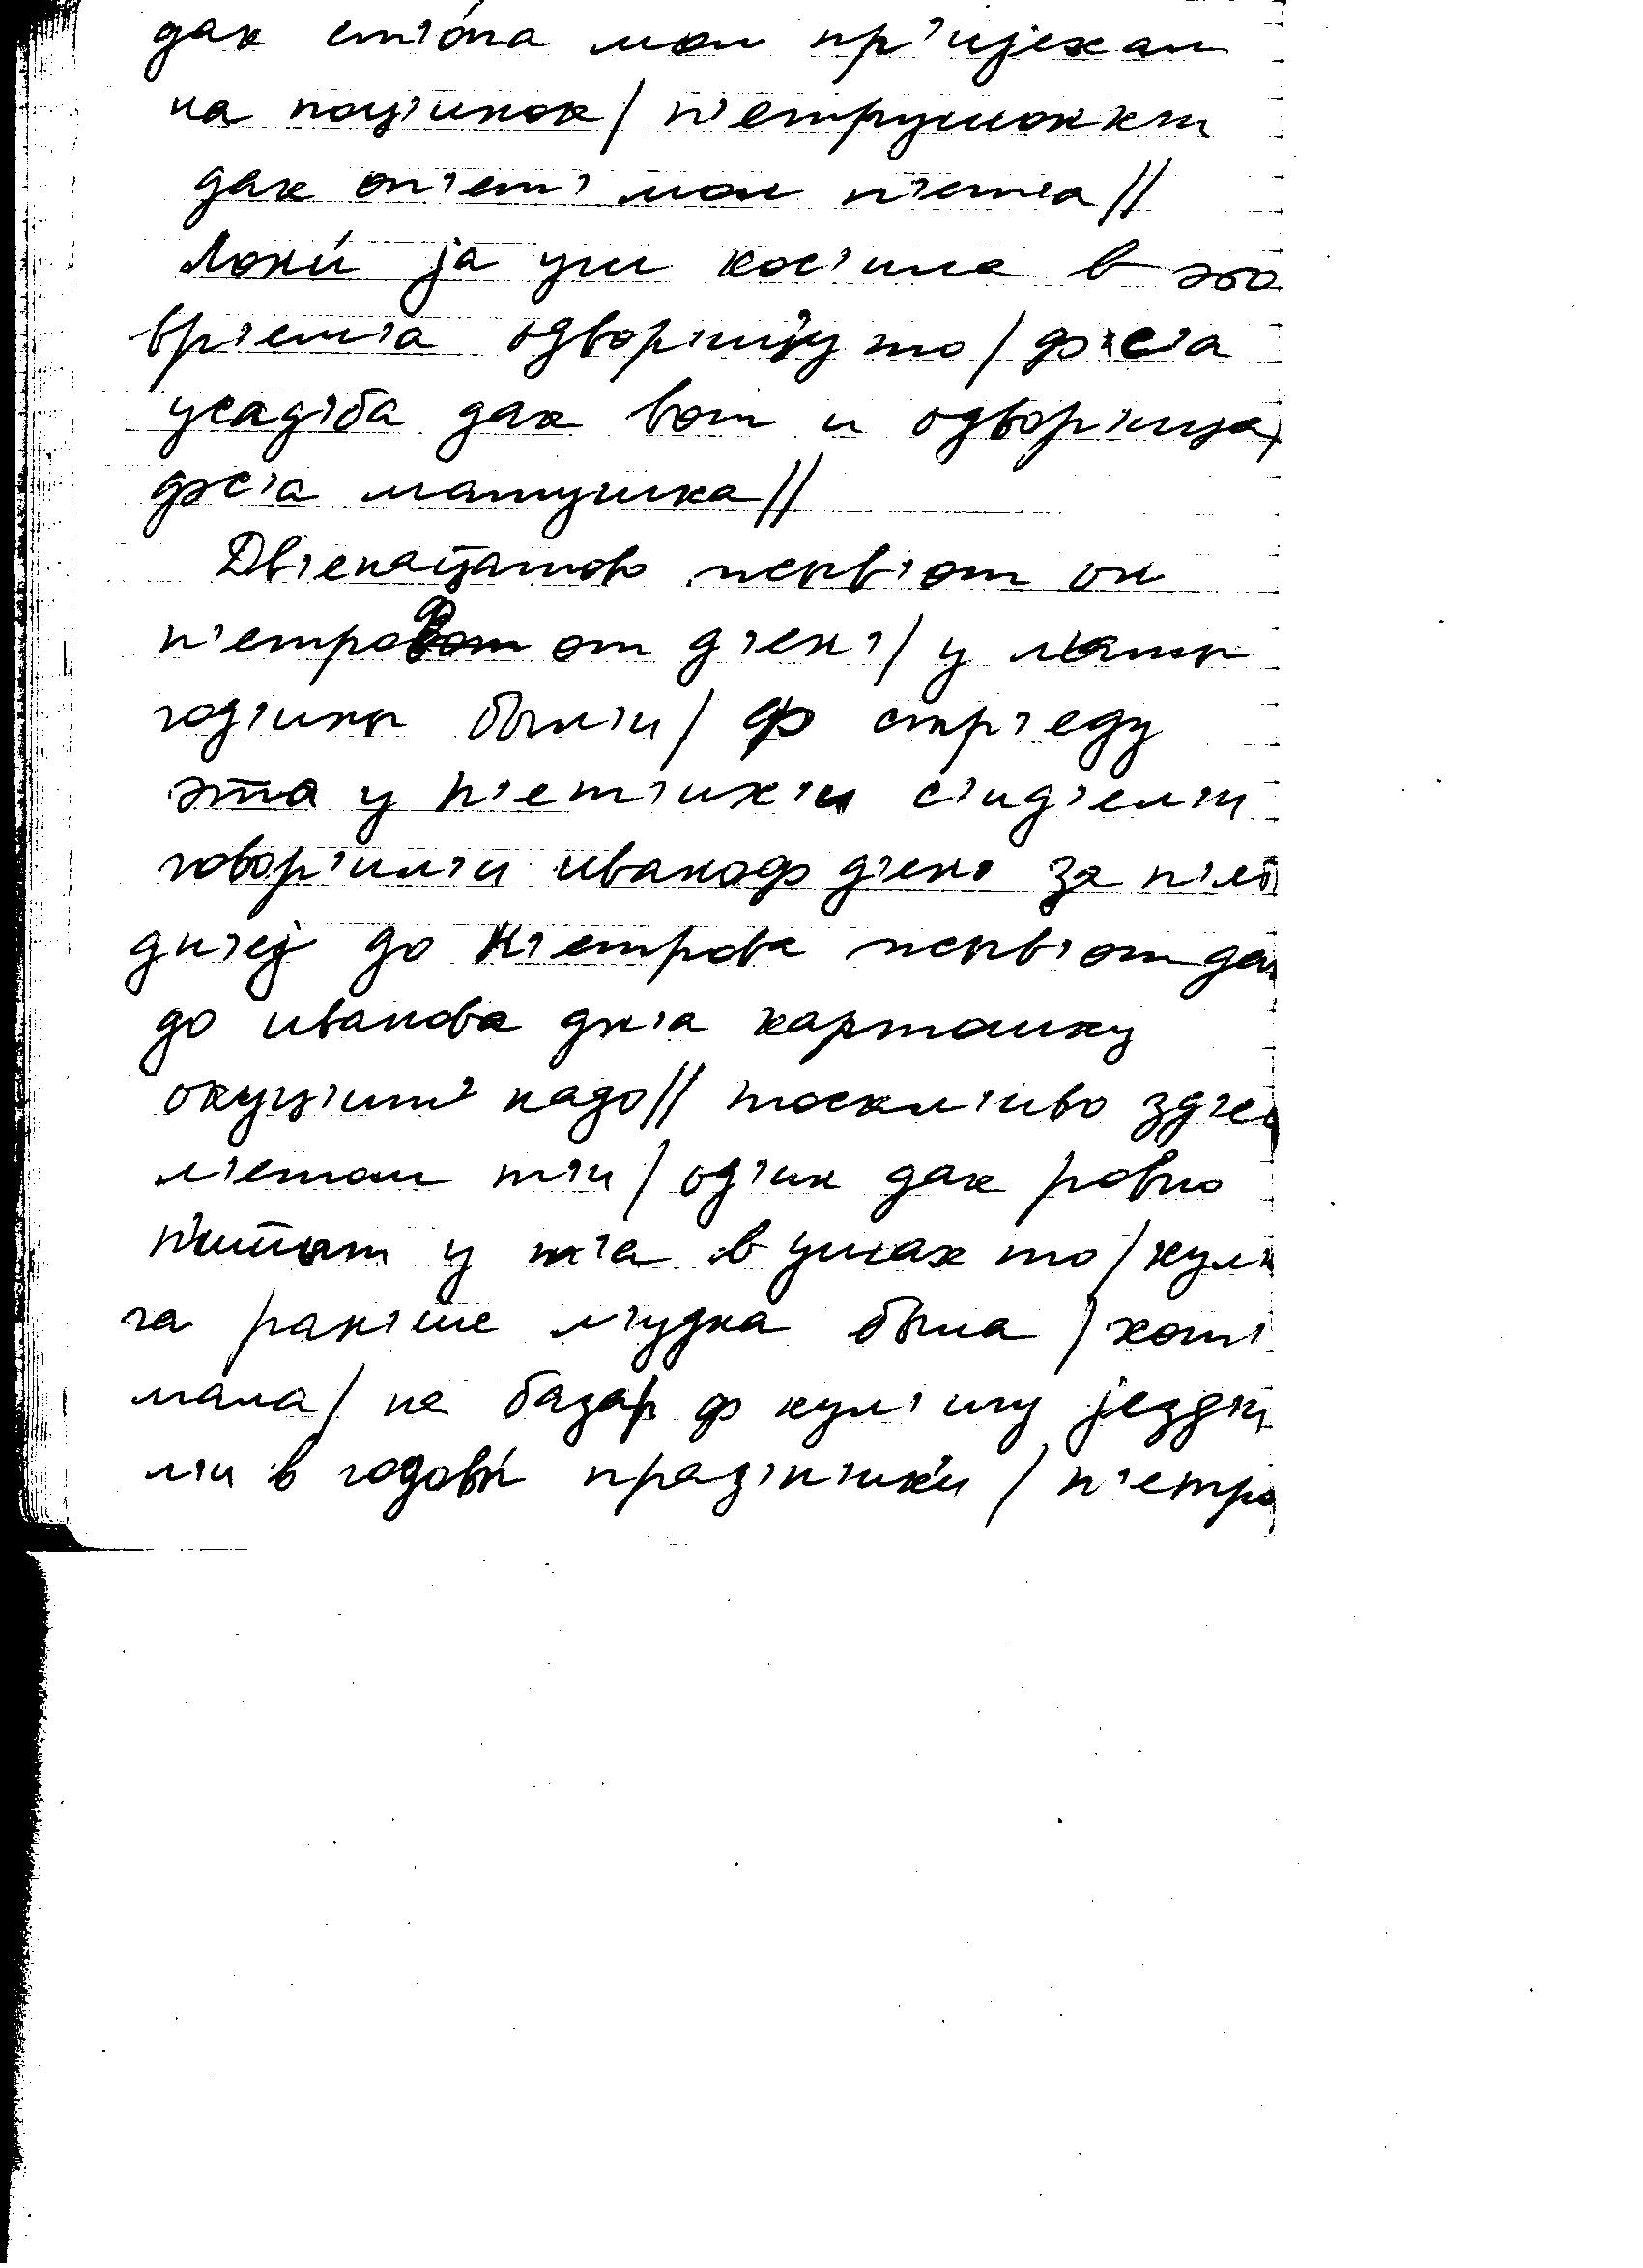 дак ст'о́па мол пр'ијехал
на поч'инок / п'етрушонкы
дак оп'ет' мол п'ет'а //
Лони́ ја уш кос'ила в эво
вр'ем'а одвор'ицу то / фс'а
усад'ба дак вот и одвор'ица,
фс'а матушка //
Дв'енац̄атово женв'от он
п'етроф от д'ен' / у мамы
год'ины был'и / ф стр'еду
эт̄а у п'ет'ихи с'ид'ел'и
говор'ил'и иваноф д'ен' за п'ет̄
дн'еј до п'етрова женв'от да
до иванова дн'а картошку
окуч'ит' надо // тоскл'иво зд'е
л'етом т'и / од'ин дак ровно
п'ишшот у т'а в ушах то / кул'и
га ран'ше л'удна была / хот'
мала / на базар ф кул'игу језд'и
л'и в годовы́ праз'н'ики / п'етро